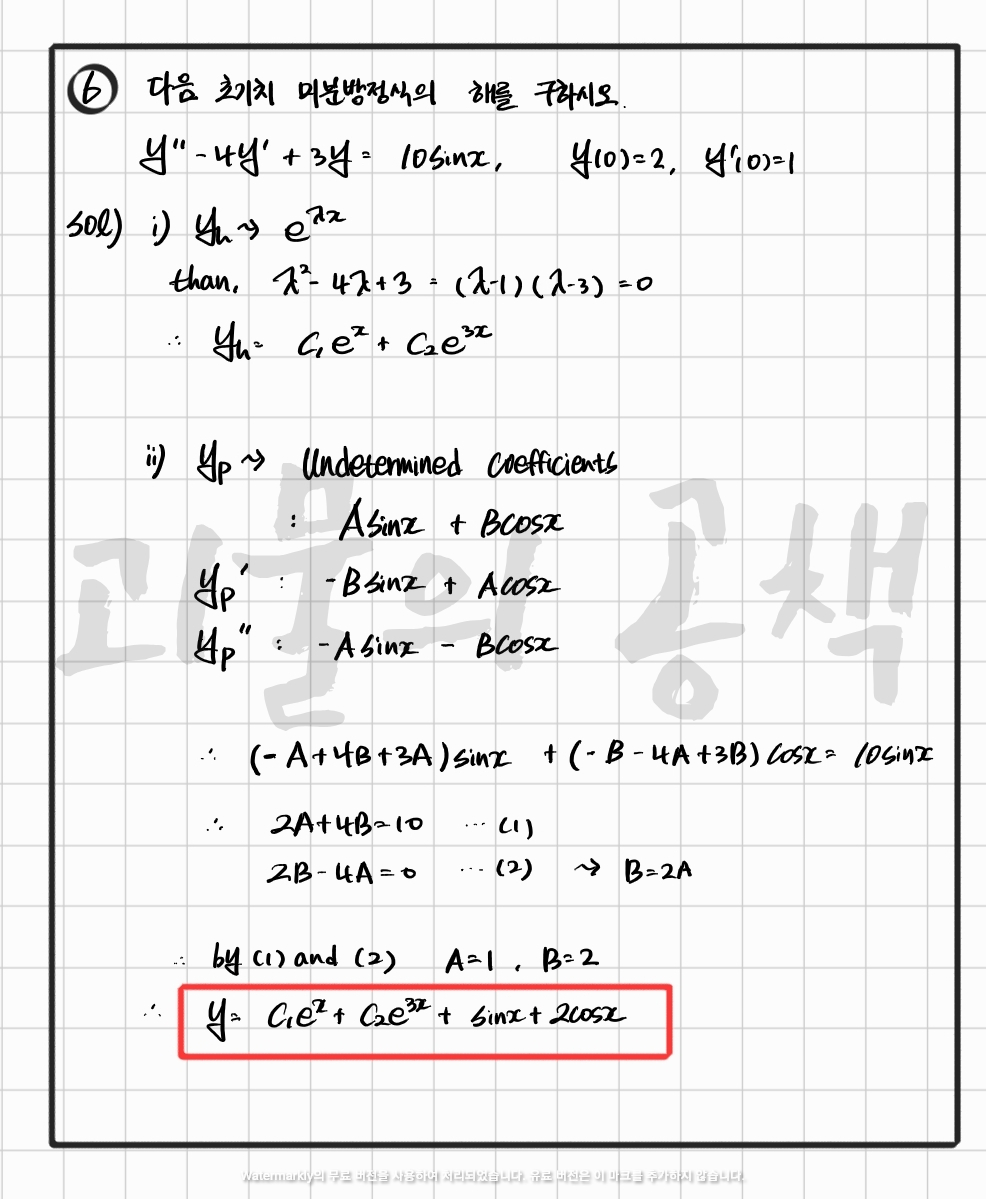 ⑥ 다음 초기치 미분방정식의 해를 구하시오.
y" - 4y' + 3y = 10sinx, y(0)=2, y'(0)=1
sol) i) yₕ ⇝ e^{λx}
than, λ² - 4λ + 3 = (λ-1)(λ-3) = 0
∴ yₕ = C₁e^{x} + C₂e^{3x}
ii) yₚ ⇝ Undetermined coefficients
: Asinx + Bcosx
yₚ' : -Bsinx + Acosx
yₚ" : -Asinx - Bcosx
괴물의 공책
∴ (-A+4B+3A)sinx + (-B-4A+3B)cosx = 10sinx
∴ 2A+4B=10 ⋯ (1)
2B-4A=0 ⋯ (2) ⇝ B=2A
∴ by (1) and (2) A=1, B=2
∴ y = C₁e^{x} + C₂e^{3x} + sinx + 2cosx
Watermarkly의 무료 버전을 사용하여 처리되었습니다. 유료 버전은 이 마크를 추가하지 않습니다.